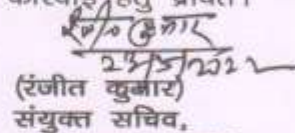 कार्रवाई हेतु प्रेषित।
रंजीत कुमार
(रंजीत कुमार)
संयुक्त सचिव,